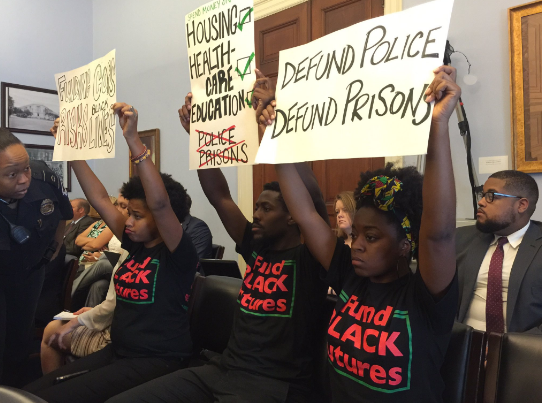 BLACK
LINES
SPEND MONEY ON
HOUSING
HEALTH-
CARE
EDUCATION
POLICE
PRISONS
DEFUND POLICE
DEFUND PRISONS
Fund
BLACK
tures
Fund
BLACK
utures
Fund
BLACK
utures